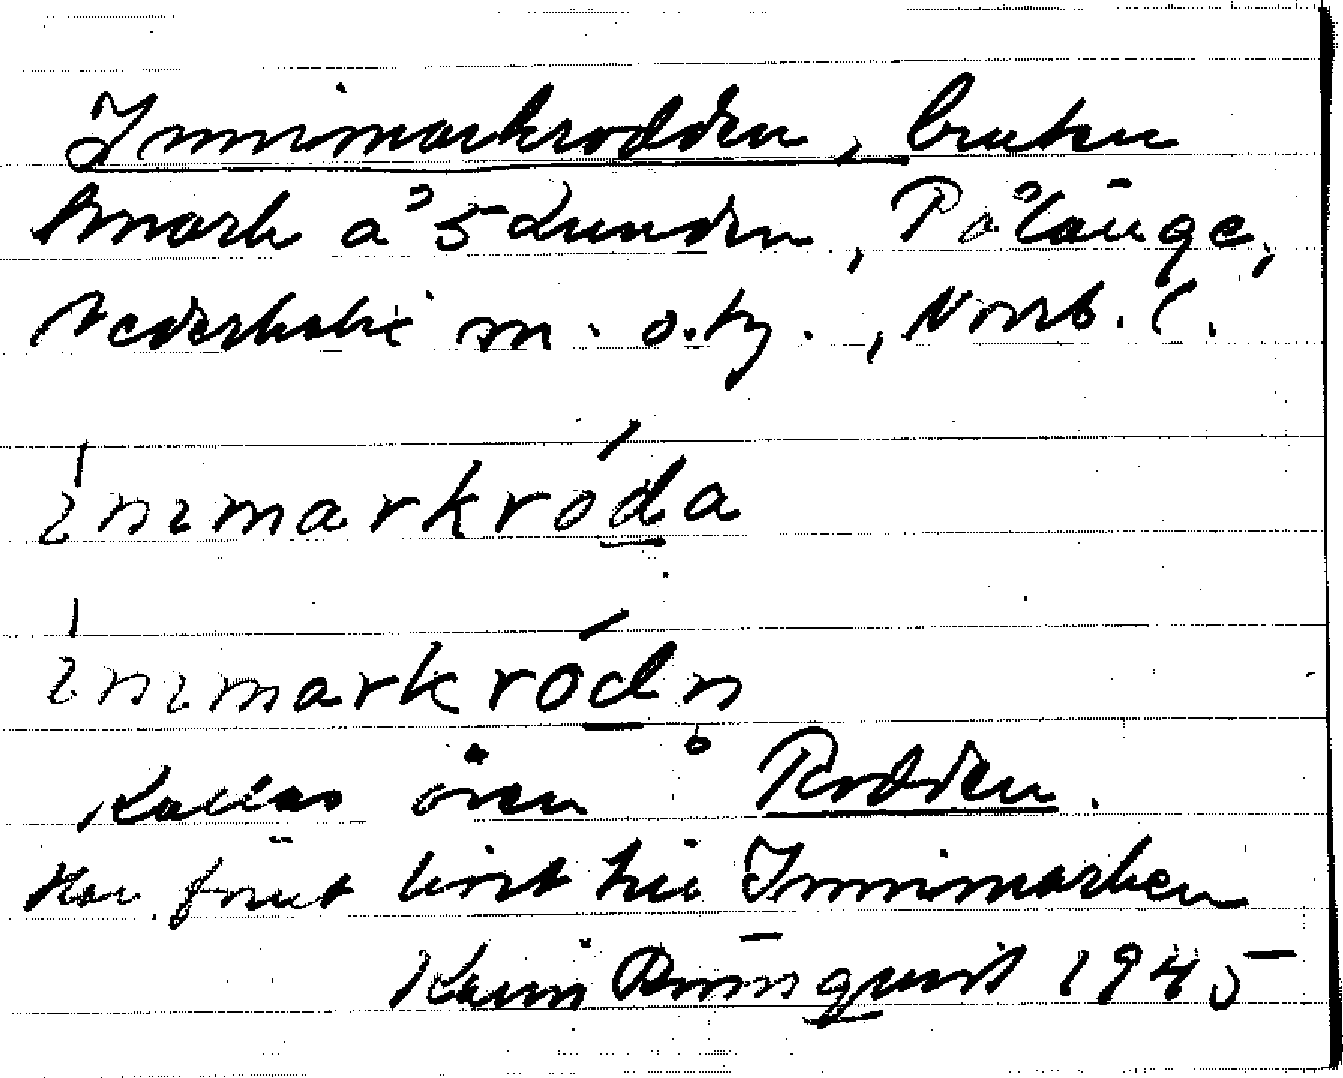 Innimarkrodden, bruten
mark å 5 Lunden, Påläng,
Nederkalix m. o. tg., Norrb. l.
ı́nımarkróda
ı́nımarkródn
Kallas även Rodden.
Har förut hört till Innimarken
Karin Rönnqvist 1945